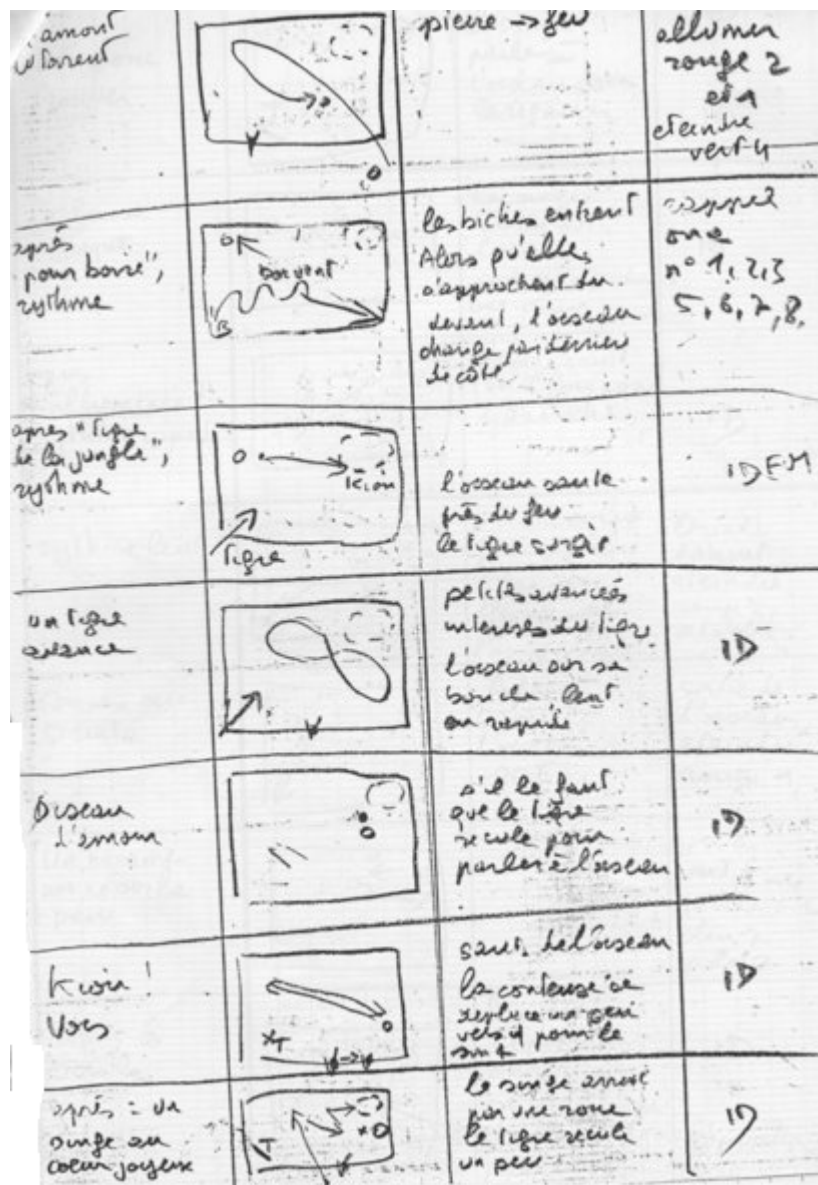 pierre → feu
allumer
rouge 2
et 1
eteindre
vert 4
après
"pour boire",
rythme
B
les biches entrent
Alors qu'elles
s'approchent du
devant, l'oiseau
change par derriere
de côté
rappel
n° 1, 2, 3
5, 6, 7, 8,
apres "Tigre
de la jungle",
rythme
Tigre
l'oiseau saute
près du feu
le tigre surgit
IDEM
un Tigre
avance
petites avancées
du tigre
l'oiseau sur sa
boucle lent
ID
Oiseau
s'il le faut
que le tigre
recule pour
parler à l'oiseau
ID
Vois
XT
saut de l'oiseau
la conteuse se
replace un peu
vers pour le
ID
après = un
singe au
coeur joyeux
T
le singe arrive
par une zone
le tigre recule
un peu
ID